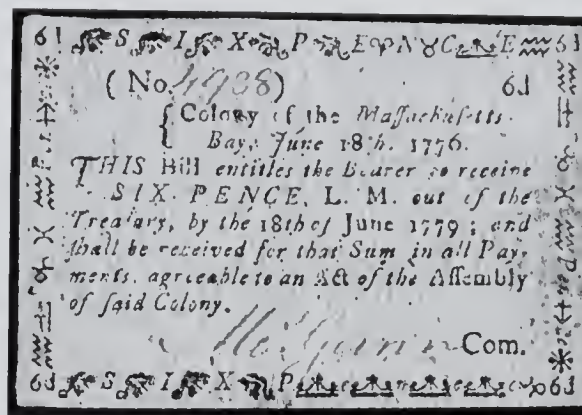 6d S I X P E N C E 6d
(No. 4908) 6d
Colony of the Maſſachuſetts
Bay, June 18th. 1776.
THIS Bill entitles the Bearer to receive
SIX PENCE, L. M. out of the
Treaſury, by the 18th of June 1779; and
ſhall be received for that Sum in all Pay-
ments, agreeable to an Act of the Aſſembly
of ſaid Colony.
Com.
6d S I X P 6d